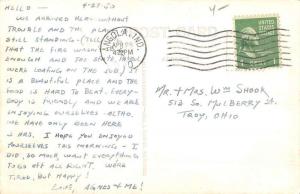 HELLO — 4-27-50
WE ARRIVED HERE WITHOUT
TROUBLE AND THE PLACE
STILL STANDING - (TELL
THAT THE FIRE WASN'T
ENOUGH AND THE STATE
WERE LOAFING ON THE JOB) IT
IS A BEAUTIFUL PLACE AND THE
FOOD IS HARD TO BEAT. EVERY-
BODY IS FRIENDLY AND WE ARE
ENJOYING OURSELVES - ALTHO.
WE HAVE ONLY BEEN HERE
HRS. I HOPE YOU ENJOYED
YOURSELVES THIS MORNING - I
DID, SO MUCH WANT EVERYTHING
TO GO OFF ALL RIGHT. WE'RE
TIRED, BUT HAPPY!
LOVE, AGNES + ME!
ANGOLA, IND.
APR 28
PM
MR. + MRS. WM SHOOK
512 SO. MULBERRY ST.
TROY, OHIO